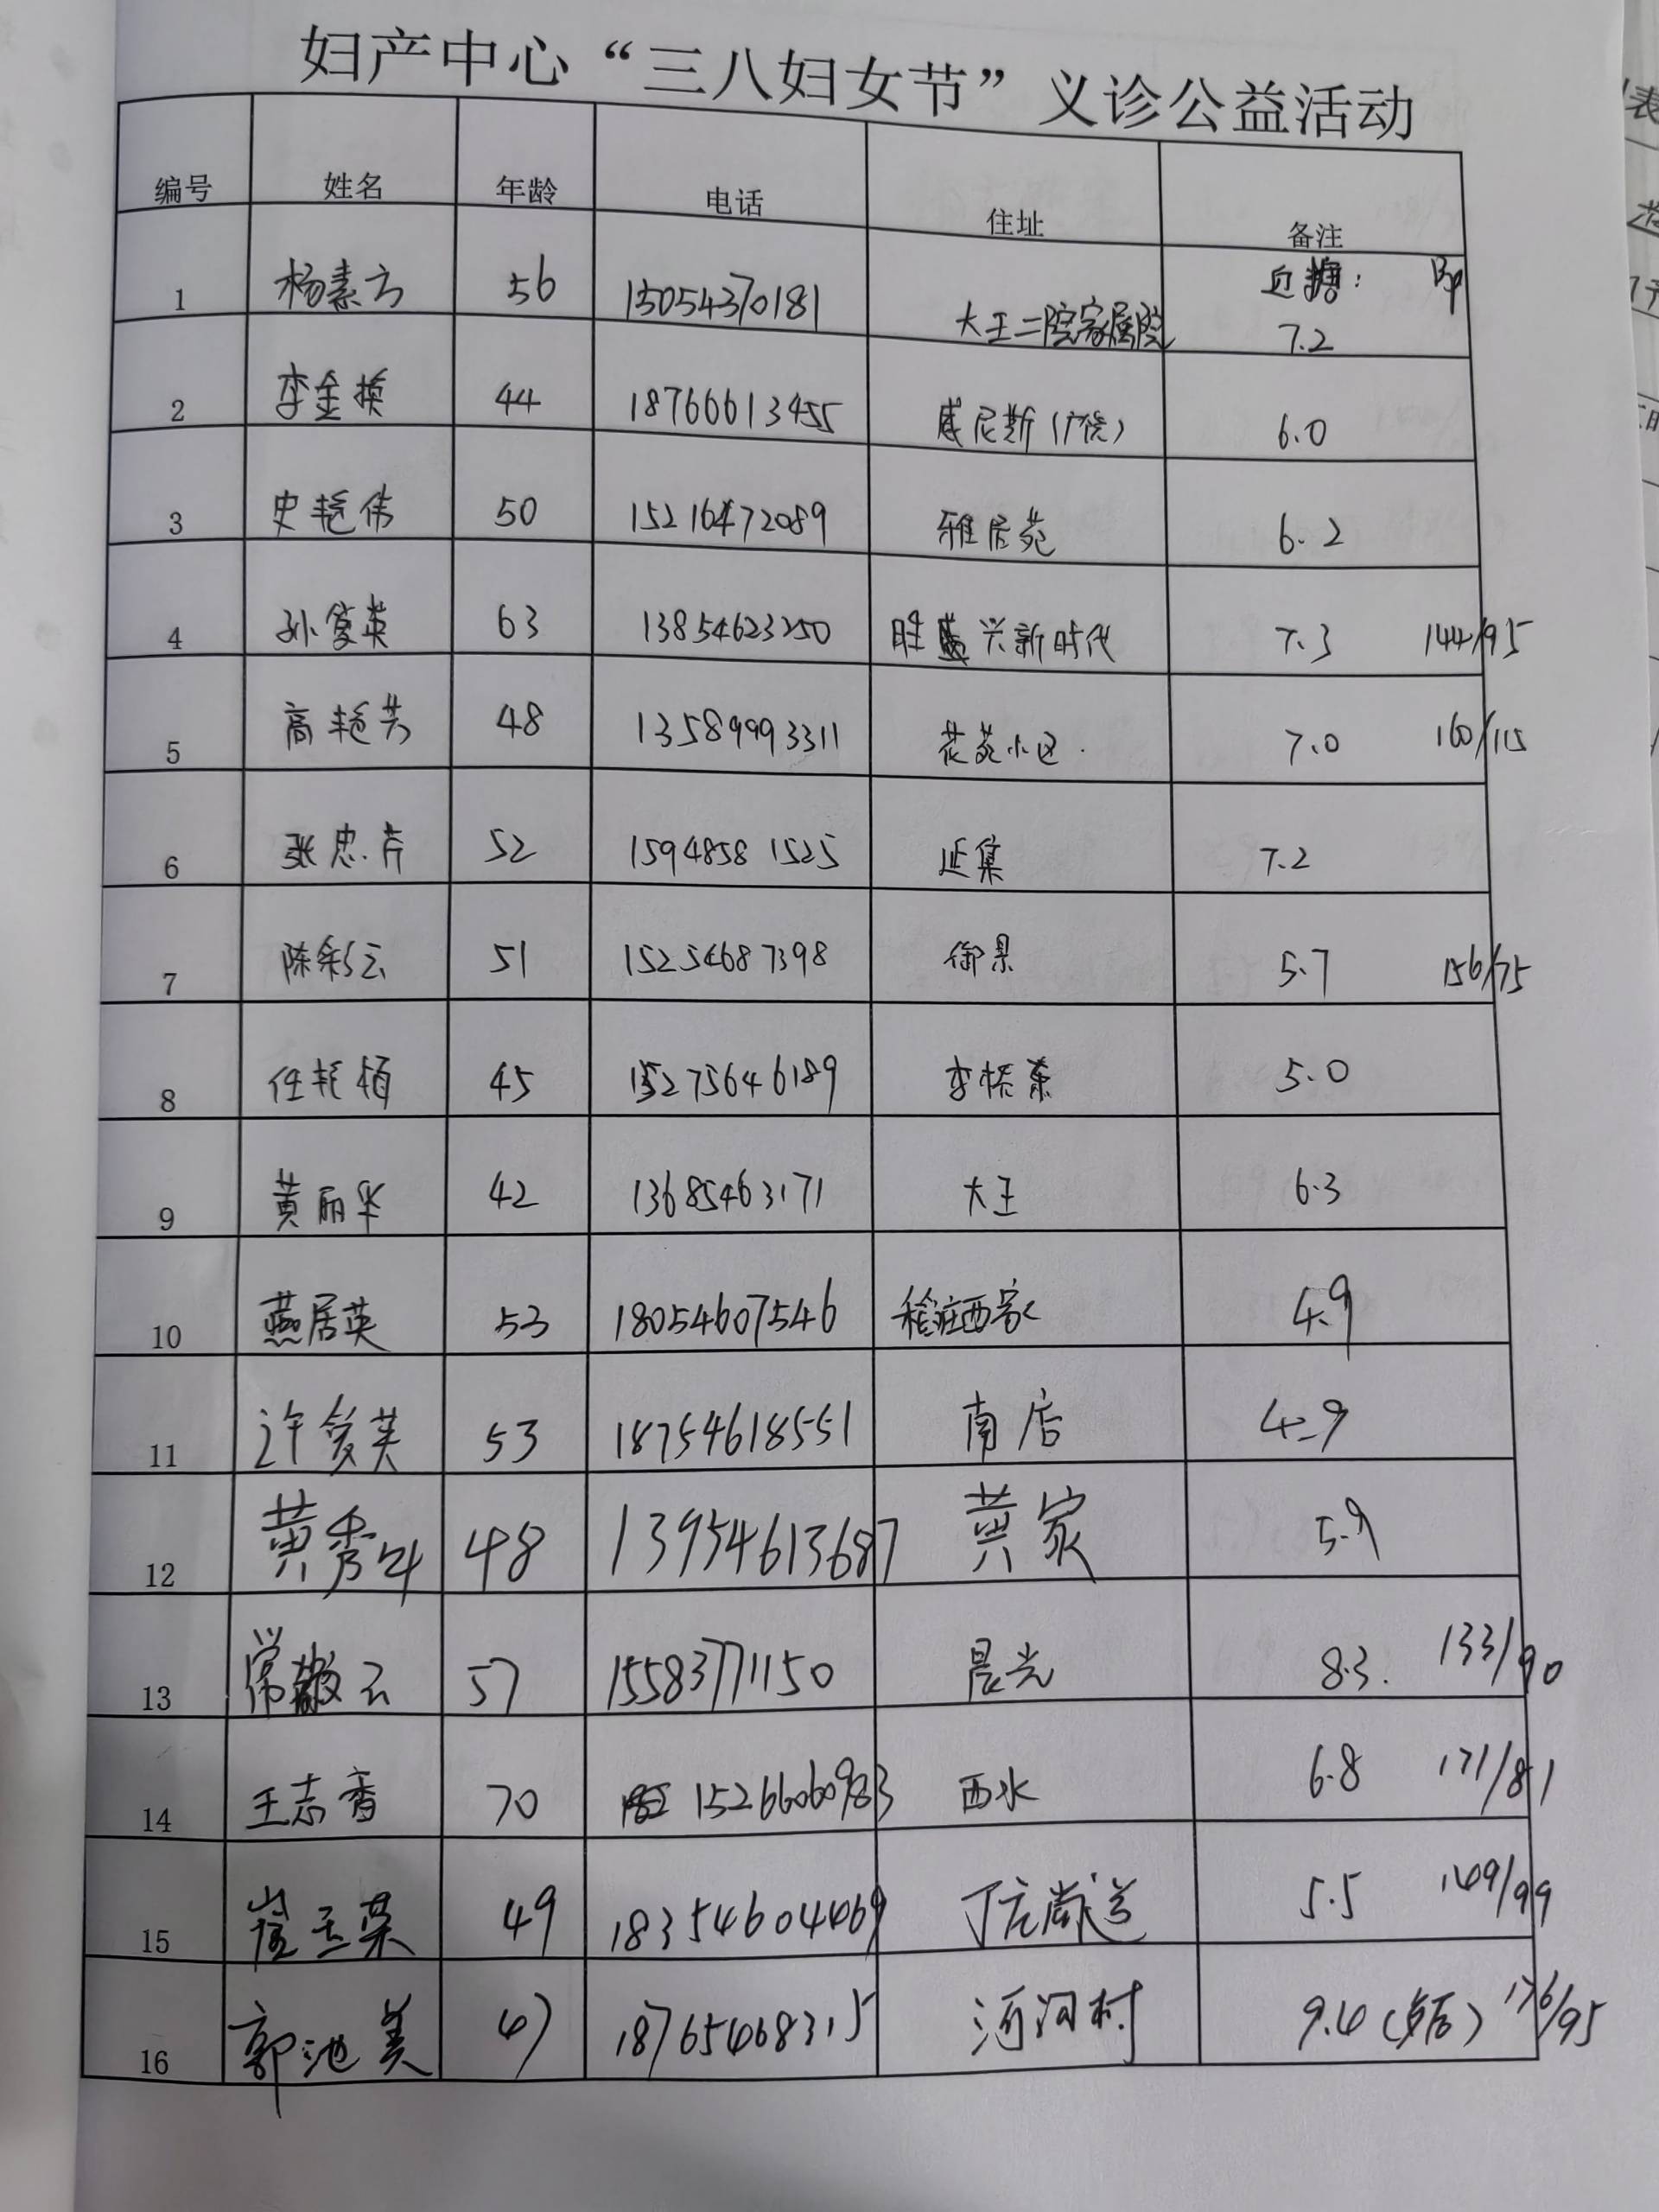 妇产中心“三八妇女节”义诊公益活动
编号 姓名 年龄 电话 住址 备注
血糖: Bp
1 杨素方 56 15054370181 大王二院家属院 7.2
2 李金换 44 18766613455 威尼斯(广饶) 6.0
3 史艳伟 50 15216472089 雅居苑 6.2
4 孙复英 63 13854623250 胜 兴新时代 7.3 144/95
5 高艳芳 48 13589993311 花苑小区 7.0 160/115
6 张忠芹 52 15948581525 延集 7.2
7 陈彩云 51 15254687398 御景 5.7 156/75
8 任艳梅 45 15275646189 李桥东 5.0
9 黄丽华 42 13685463171 大王 6.3
10 燕居英 53 18054607546 4.9
11 许爱英 53 18754618551 南店 4.9
12 黄秀 48 13954613687 黄家 5.9
13 常敏云 57 15583771150 晨光 8.3. 133/90
14 王志香 70 15266060983 西水 6.8 171/81
15 崔玉荣 49 18354604469 丁庄街道 5.5 149/99
16 郭池美 47 18765468315 村 9.4( 后) 176/95